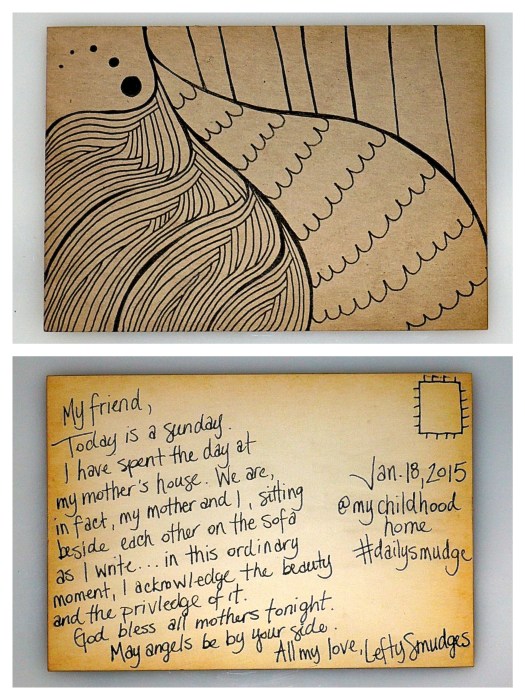 My friend,
Today is a sunday.
I have spent the day at
my mother's house. We are,
in fact, my mother and I, sitting
beside each other on the sofa
as I write.... in this ordinary
moment, I acknowledge the beauty
and the priviledge of it.
God bless all mothers tonight.
May angels be by your side.
All my love, Lefty Smudges
Jan. 18, 2015
@mychildhood
home
#dailysmudge